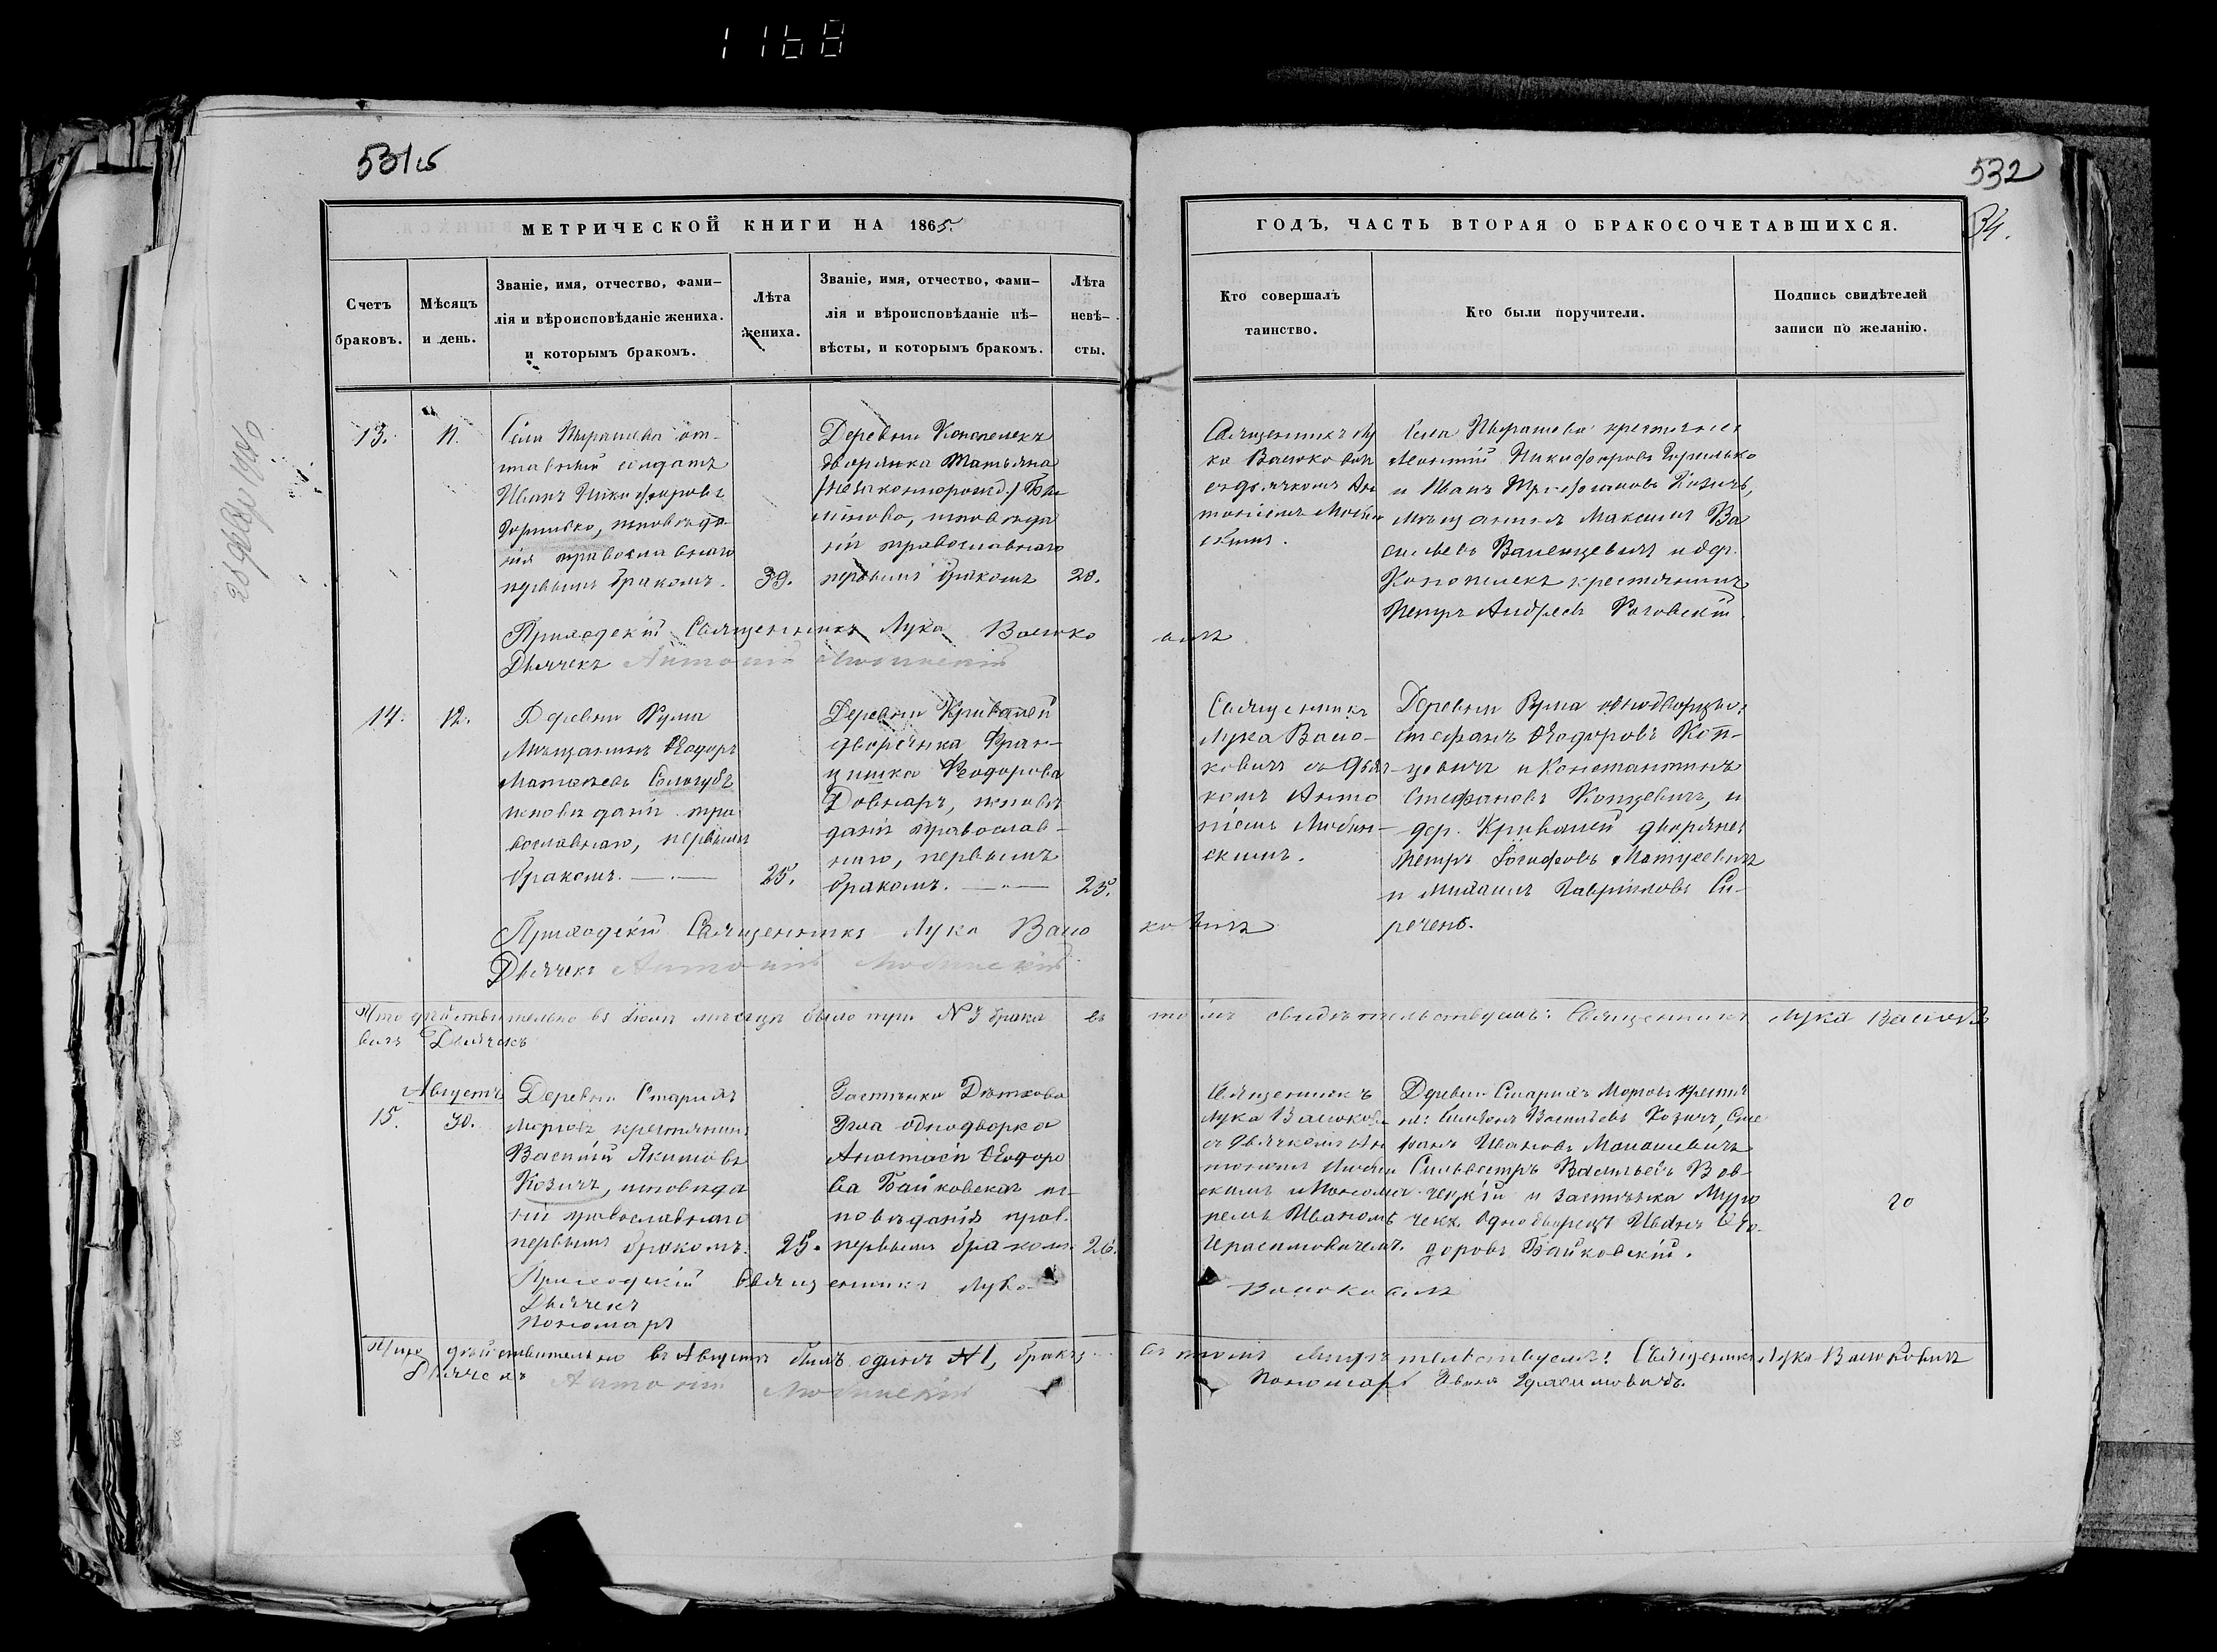 1168
531об
532
34.
МЕТРИЧЕСКОЙ КНИГИ НА 1865.
ГОДЪ, ЧАСТЬ ВТОРАЯ О БРАКОСОЧЕТАВШИХСЯ.
Счетъ браковъ.
Мѣсяцъ и день.
Званіе, имя, отчество, фами-
лія и вѣроисповѣданіе жениха.
и которымъ бракомъ.
Лѣта
жениха.
Званіе, имя, отчество, фами-
лія и вѣроисповѣданіе нѣ-
вѣсты, и которымъ бракомъ.
Лѣта
невѣ-
сты.
Кто совершалъ
таинство.
Кто были поручители.
Подпись свидѣтелей
записи по желанію.
13.
11.
Села от-
ставный солдатъ
Иванъ Никифоровъ
исповѣда-
нія православнаго
первымъ бракомъ.
39.
Деревни
дворянка Татьяна
/незаконнорожд./
исповѣда
нія православнаго
первымъ бракомъ
20.
Священникъ Лу
ка Васюкович
съ дьячкомъ Ан
тоніемъ
скимъ.
Села крестьяне
Никифоровъ
и Иванъ Трофимовъ Козичъ,
Мѣщанинъ Максимъ Ва
сильевъ и дер.
крестьянинъ
Петръ Андреевъ
Приходскій Священникъ Лука Васюко вичъ
Дьячекъ Антоній Любинскій
14.
12.
Деревни Рума
Мѣщанинъ Ѳеодоръ
Матвѣевъ Сологубъ
исповѣданія пра
вославнаго, первымъ
бракомъ.
25.
Деревни Криваней
дворянка Фран-
цишка Ѳеодорова
Довнаръ, исповѣ
данія православ-
наго, первымъ
бракомъ.
25.
Священникъ
Лука Васю-
ковичъ съ дьяч-
комъ Анто
ніемъ Любин-
скимъ.
Деревни Рума однодворцы:
Стефанъ Ѳеодоровъ Коп-
цевичъ и Константинъ
Стефановъ Копцевичъ, и
дер. Криваней дворяне:
Петръ Іосифовъ Матусевичъ
и Михаилъ Гавріиловъ Си-
речень.
Приходскій Священникъ Лука Васю ковичъ
Дьячекъ Антоній Любинскій
Что дѣйствительно въ Іюлѣ мѣсяцѣ было три № 3 брака въ томъ свидѣтельствуемъ: Священникъ Лука Васюко
вичъ Дьячекъ
Августъ
15.
30.
Деревни Старыхъ
Моговъ крестьянинъ
Василій Якимовъ
Козичъ, исповѣда
нія православнаго
первымъ бракомъ.
25.
Застѣнка
однодворка
Анастасія Ѳеодоро
ва Байковская ис-
повѣданія прав.
первымъ бракомъ.
26.
Священникъ
Лука Васюкович
съ дьячкомъ Ан
тоніемъ Любин
скимъ и Понома
ремъ Иваномъ
Герасимовичемъ.
Деревни Старыхъ Моговъ крестья
не: Симеонъ Васильевъ Козичъ, Сте
фанъ Ивановъ Манашевичъ
Сильвестръ Васильевъ
и застѣнка
Однодворецъ Иванъ Ѳео-
доровъ Байковскій.
Приходскій Священникъ Лука Васюковичъ
Дьячекъ
Пономарь
Что дѣйствительно въ Августѣ былъ одинъ № 1, бракъ въ томъ свидѣтельствуемъ: Священникъ Лука Васюковичъ
Дьячекъ Антоній Любинскій Пономарь Иванъ Герасимовичъ.